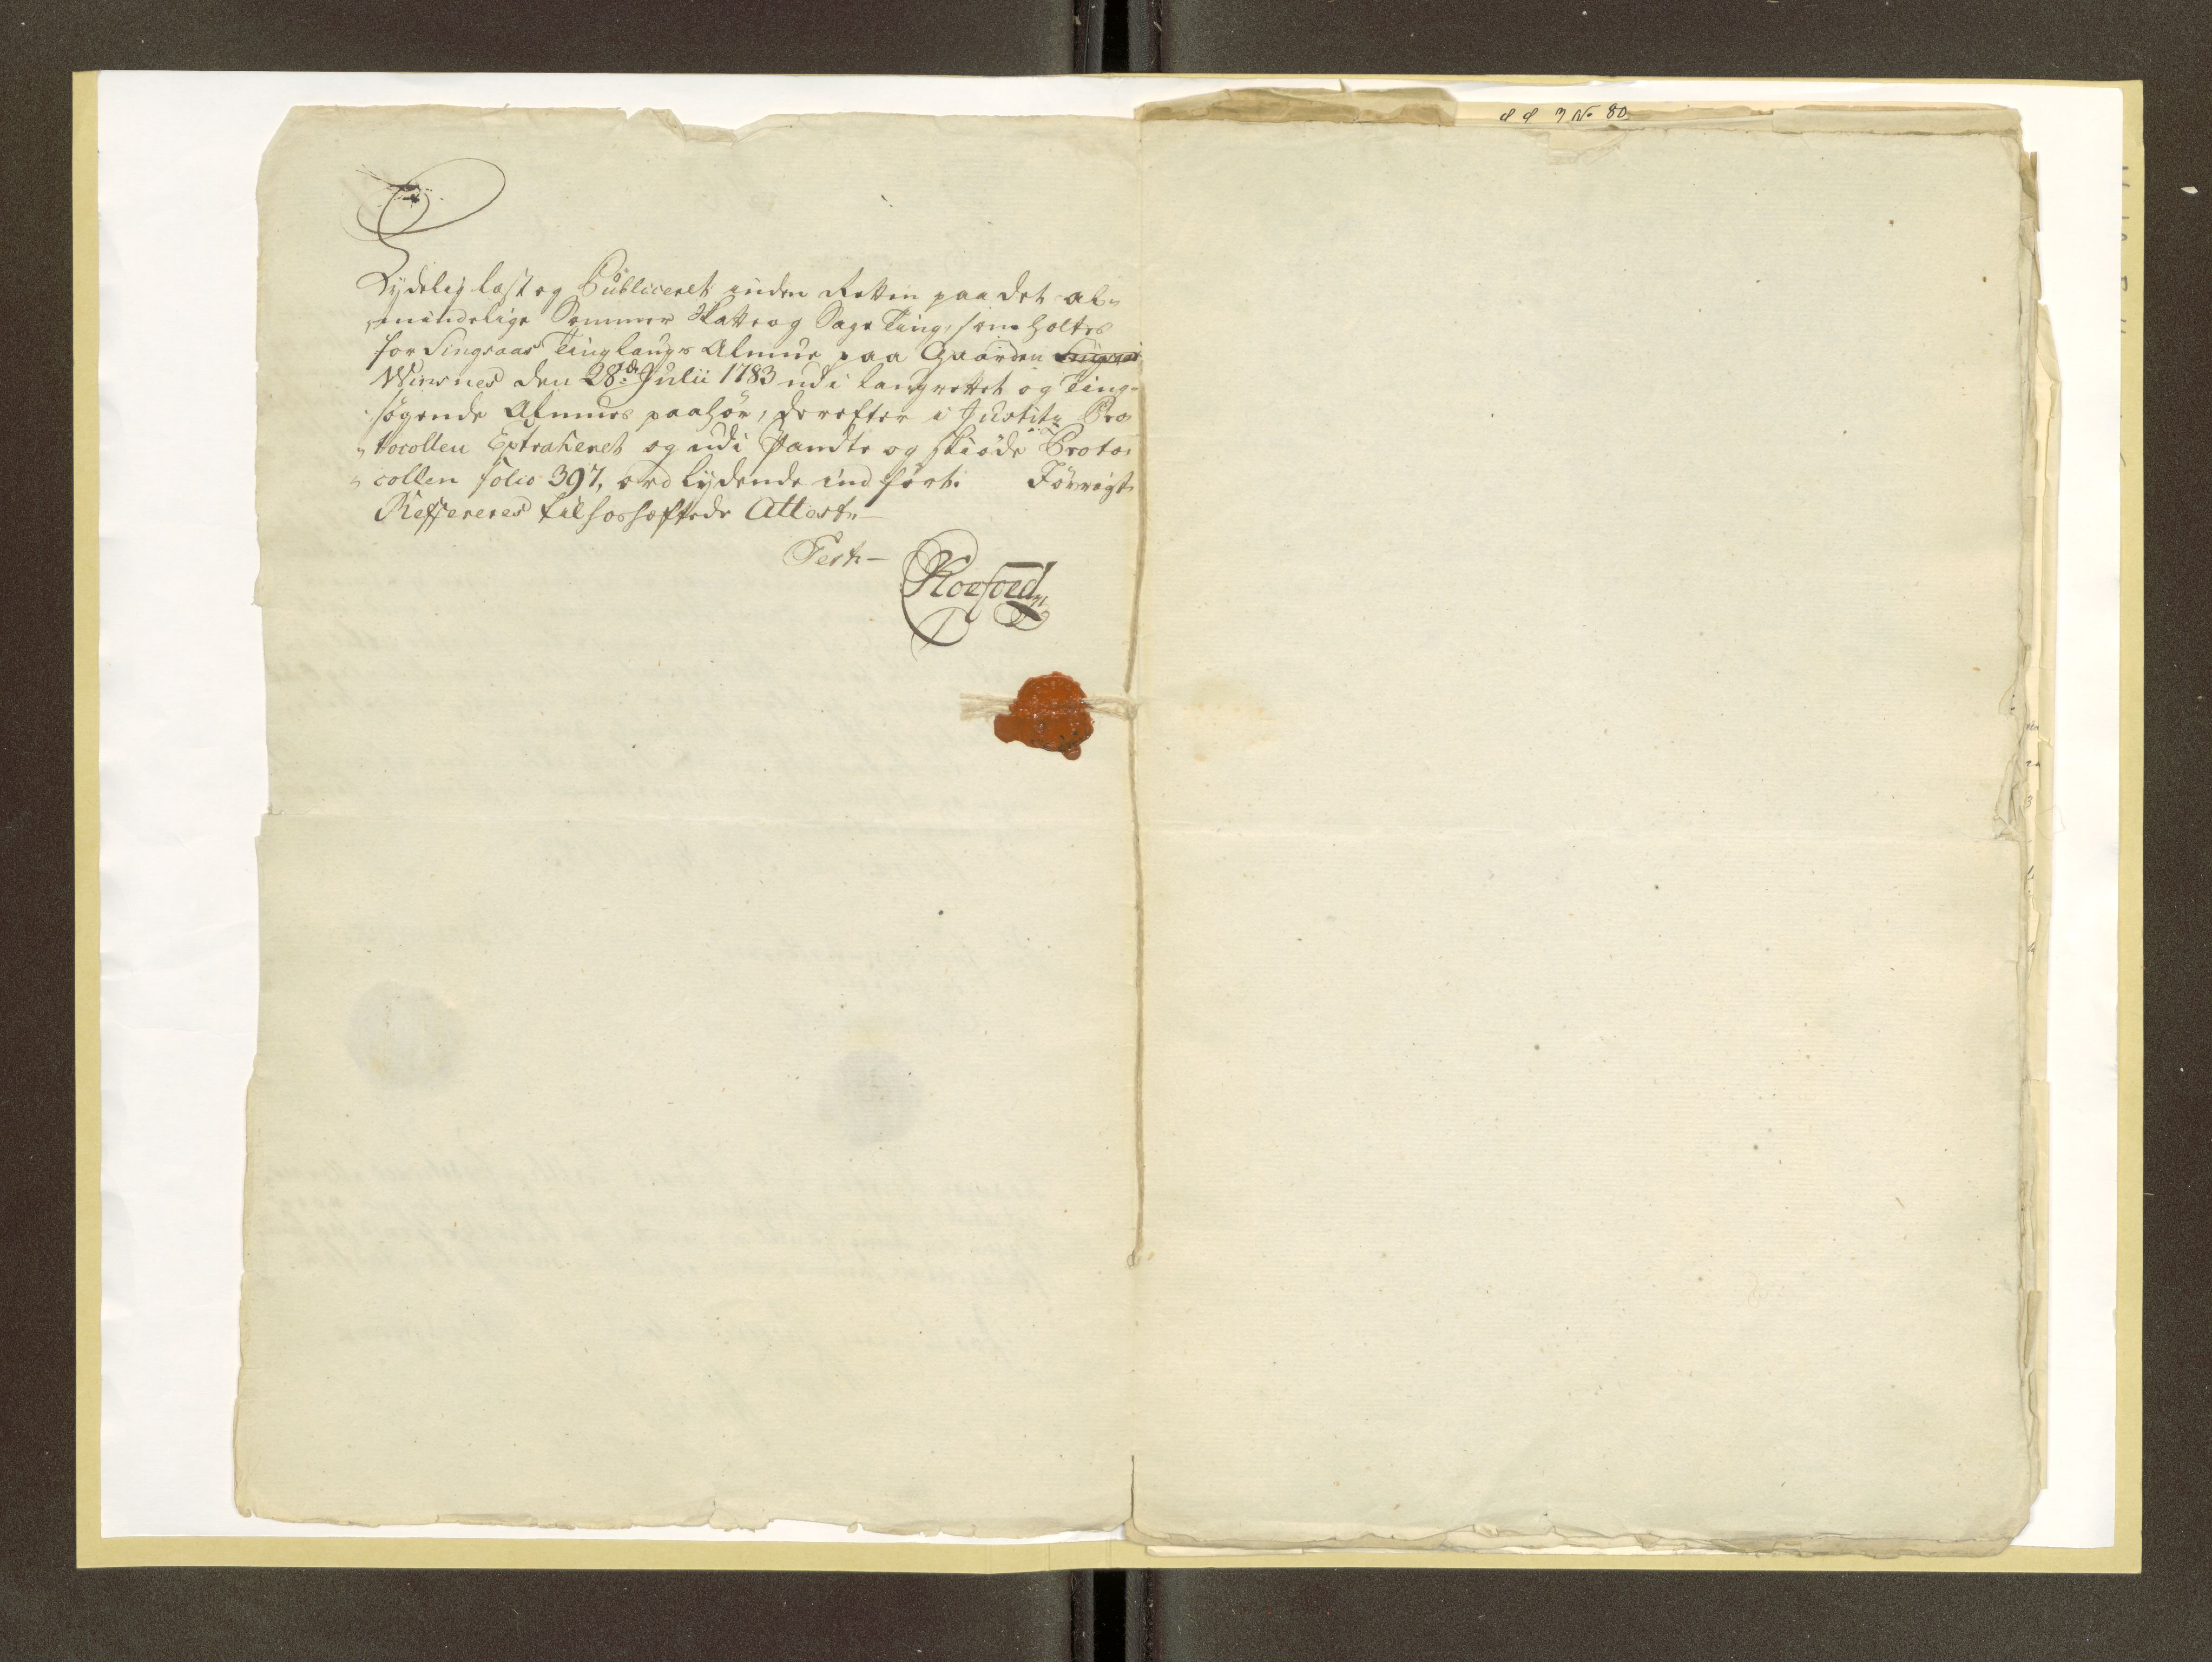 Lydelig læst og Publiceret inden Retten paa det al-
mindelige Sommer Skatte og Sage Ting, som holtes
for Singsaas Tinglaugs Almue paa Gaarden
Winsnes den 28de Julii 1783 udi laugrettet og Ting-
søgende Almues paahør, derefter i Justits Pro-
tocollen Extraheret og udi Pandte og skiøde Proto-
collen folio 397, ordlydende indført. Føvrigt
Reffereres til hoshæftede Attest.-
Test-
Koefoed
N. 80